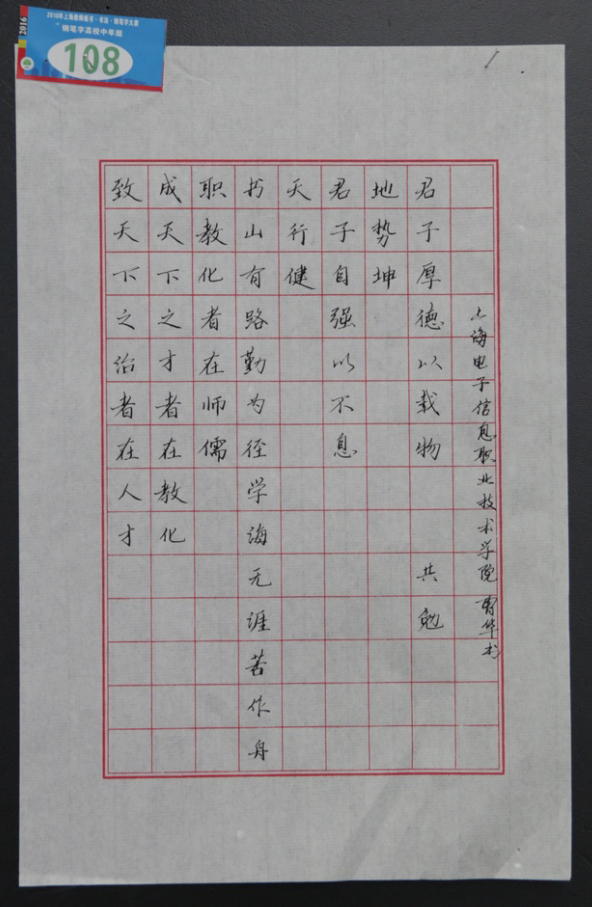 2016
2016年上海教师板书·书法·钢笔字大赛
钢笔字高校中年组
108
致天下之治者在人才
成天下之才者在教化
职教化者在师儒
书山有路勤为径学海无涯苦作舟
天行健
君子自强以不息
地势坤
君子厚德以载物 共勉
上海电子信息职业技术学院 曹华书